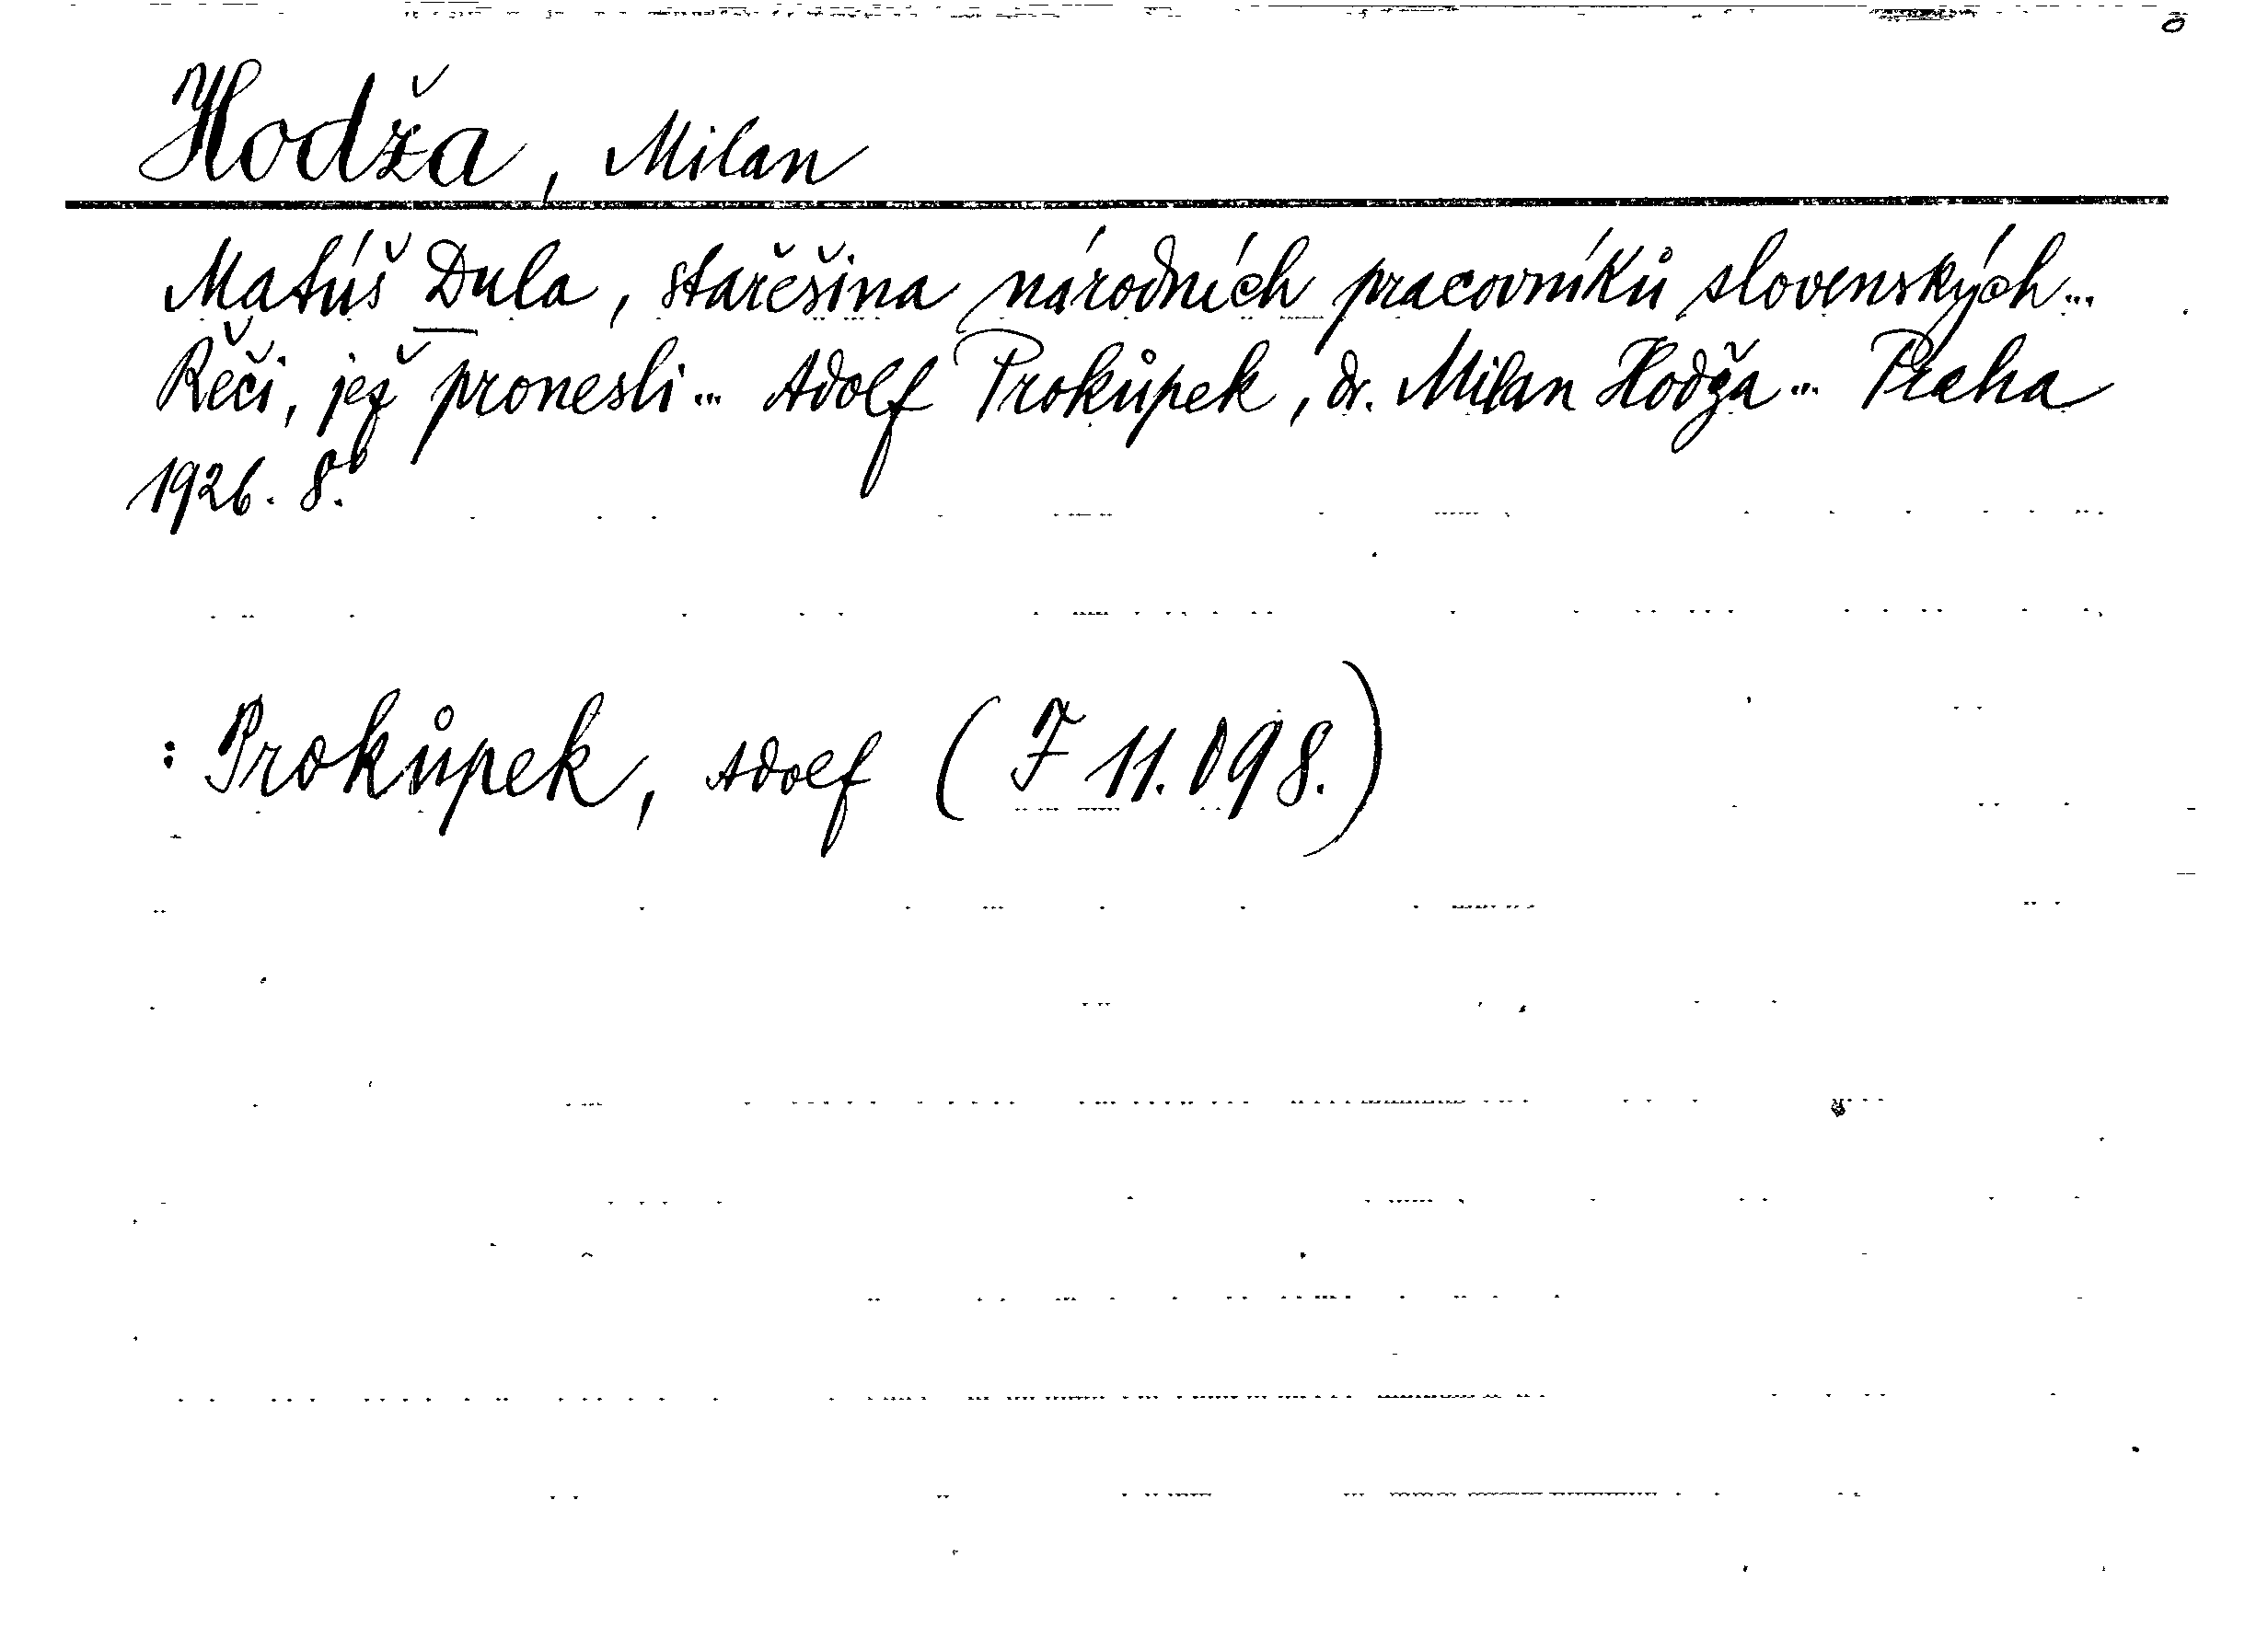 Hodža, Milan
Matúš Dula, stařešina národních pracovníků slovenských...
Řeči, jež pronesli... Adolf Prokůpek, dr. Milan Hodža... Praha
1926. 8.°
: Prokůpek, Adolf (F 11.098.)